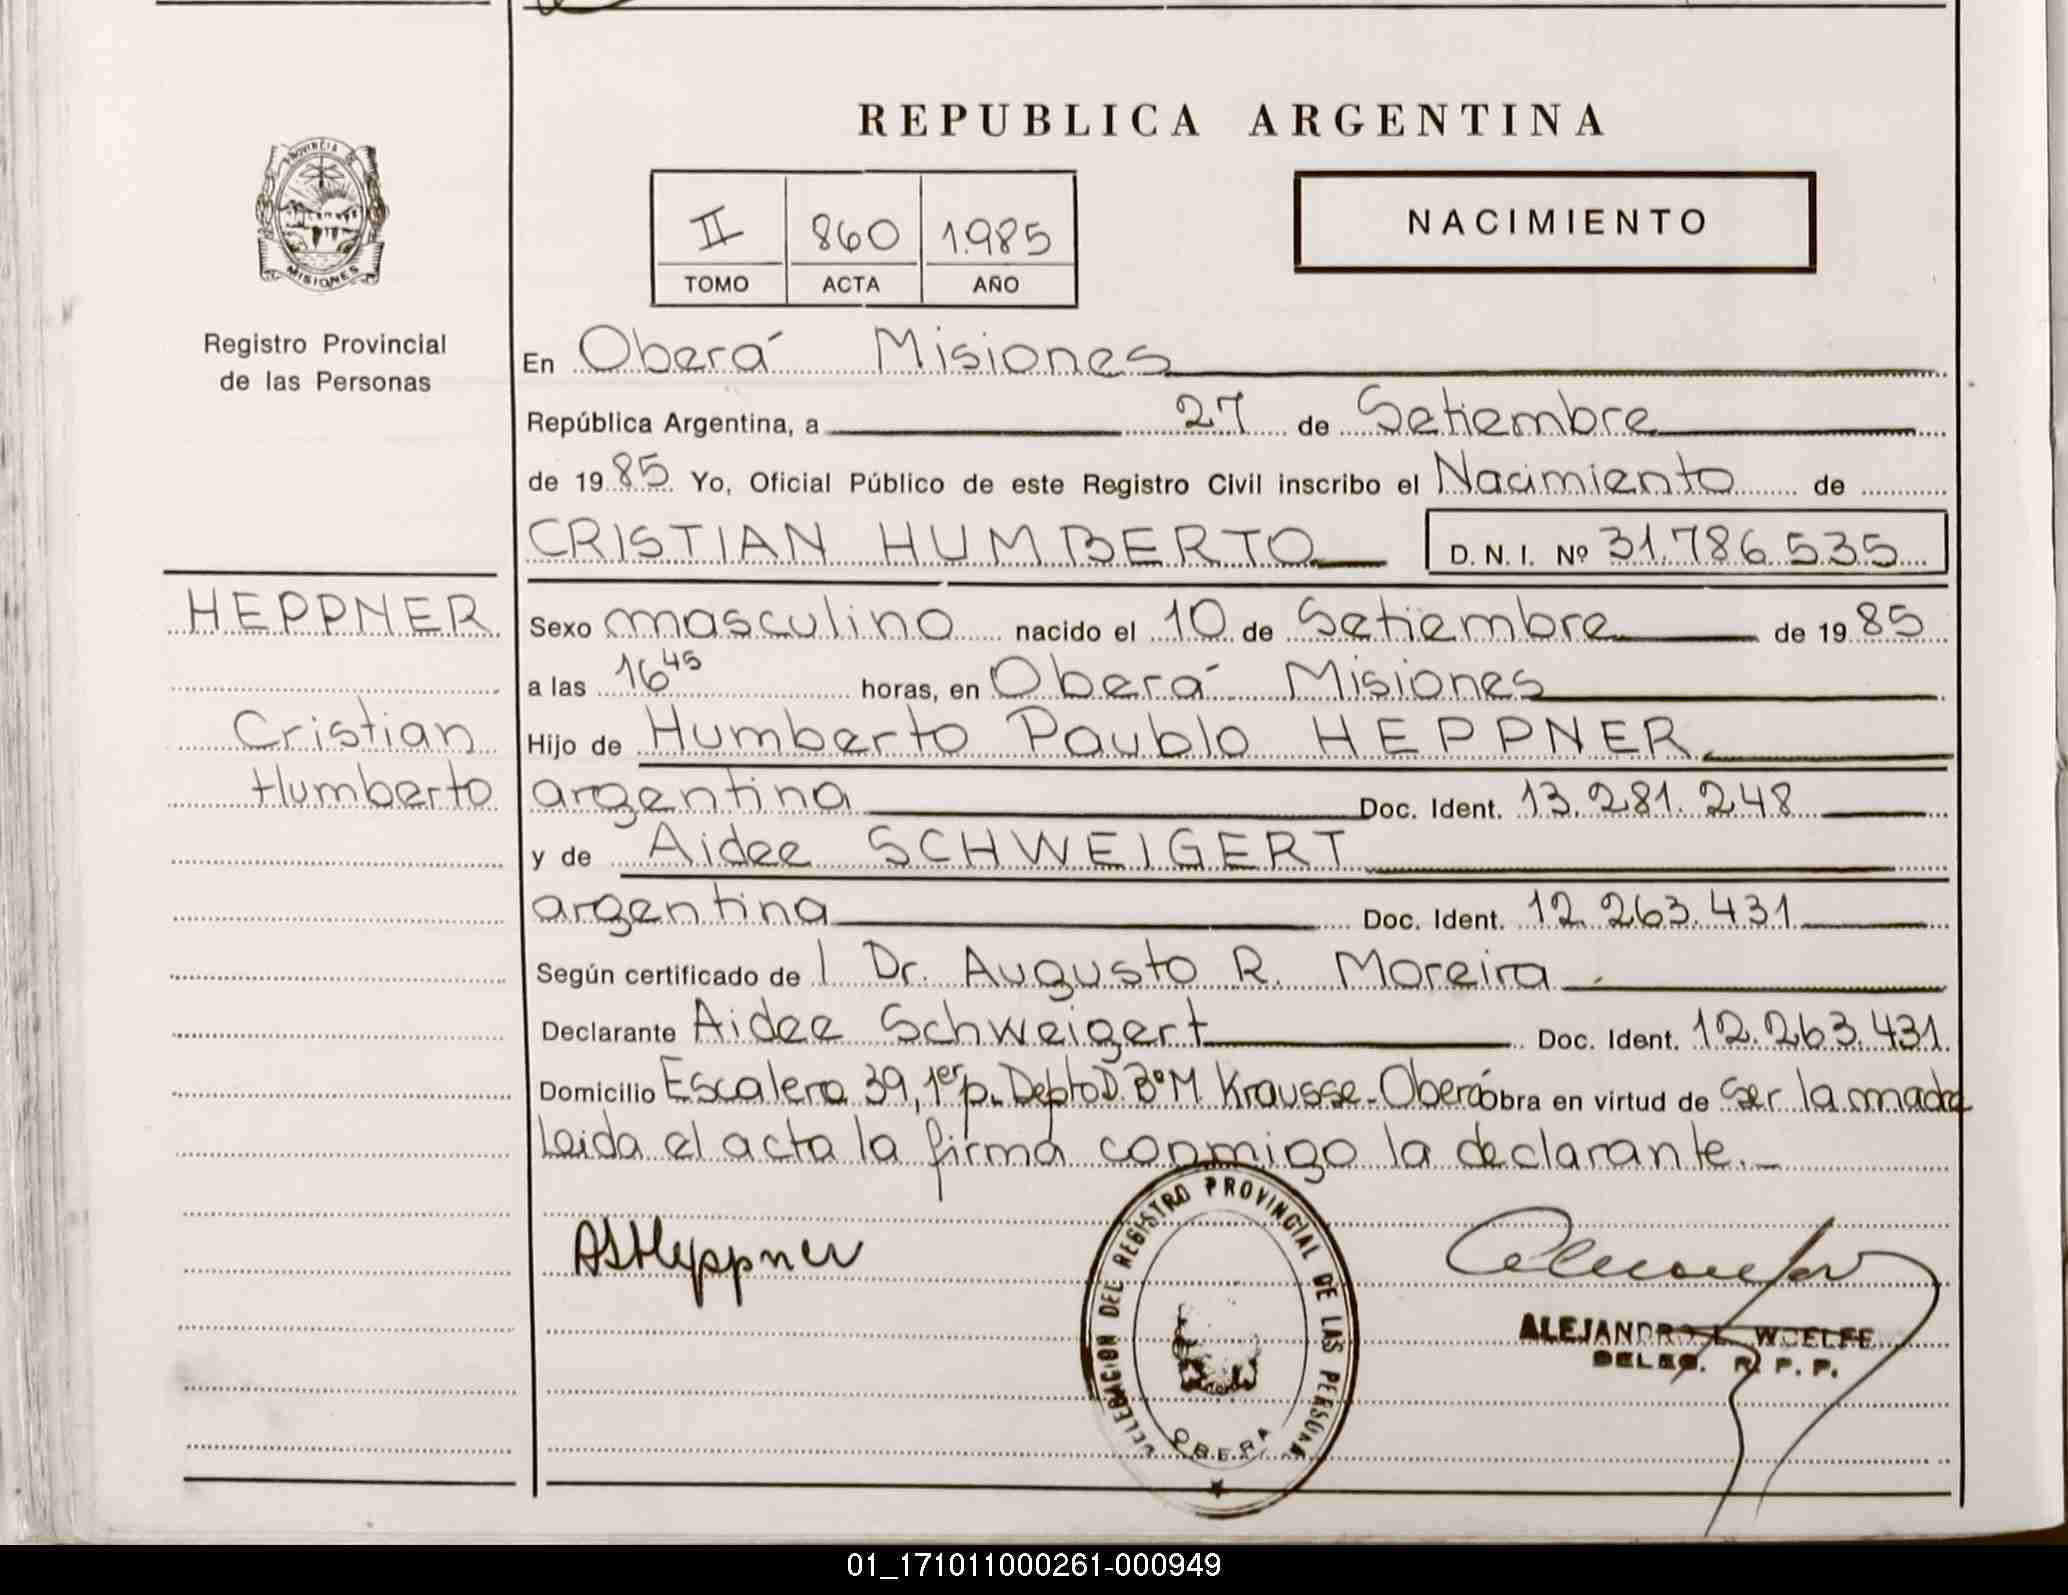 REPUBLICA ARGENTINA
PROVINCIA DE
MISIONES
Registro Provincial
de las Personas
II 860 1.985
TOMO ACTA AÑO
NACIMIENTO
En Oberá Misiones
República Argentina, a 27 de Setiembre
de 19 85 Yo, Oficial Público de este Registro Civil inscribo el Nacimiento de
CRISTIAN HUMBERTO D. N. I. Nº 31.786.535
HEPPNER
Cristian
Humberto
Sexo masculino nacido el 10 de Setiembre de 19 85
a las 16 45 horas, en Oberá Misiones
Hijo de Humberto Paublo HEPPNER
argentina Doc. Ident. 13.281.248
y de Aidee SCHWEIGERT
argentina Doc. Ident. 12.263.431
Según certificado de l Dr. Augusto R. Moreira
Declarante Aidee Schweigert Doc. Ident. 12.263.431
Domicilio Escalera 39, 1er p. Depto D. Bº M. Krausse - Oberá obra en virtud de ser la madre
Leida el acta la firma conmigo la declarante.-
ASHeppner
DELEGACION DEL REGISTRO PROVINCIAL DE LAS PERSONAS
OBERA
ALEJANDRO L. WOELFE
DELEG. R. P. P.
01_171011000261-000949